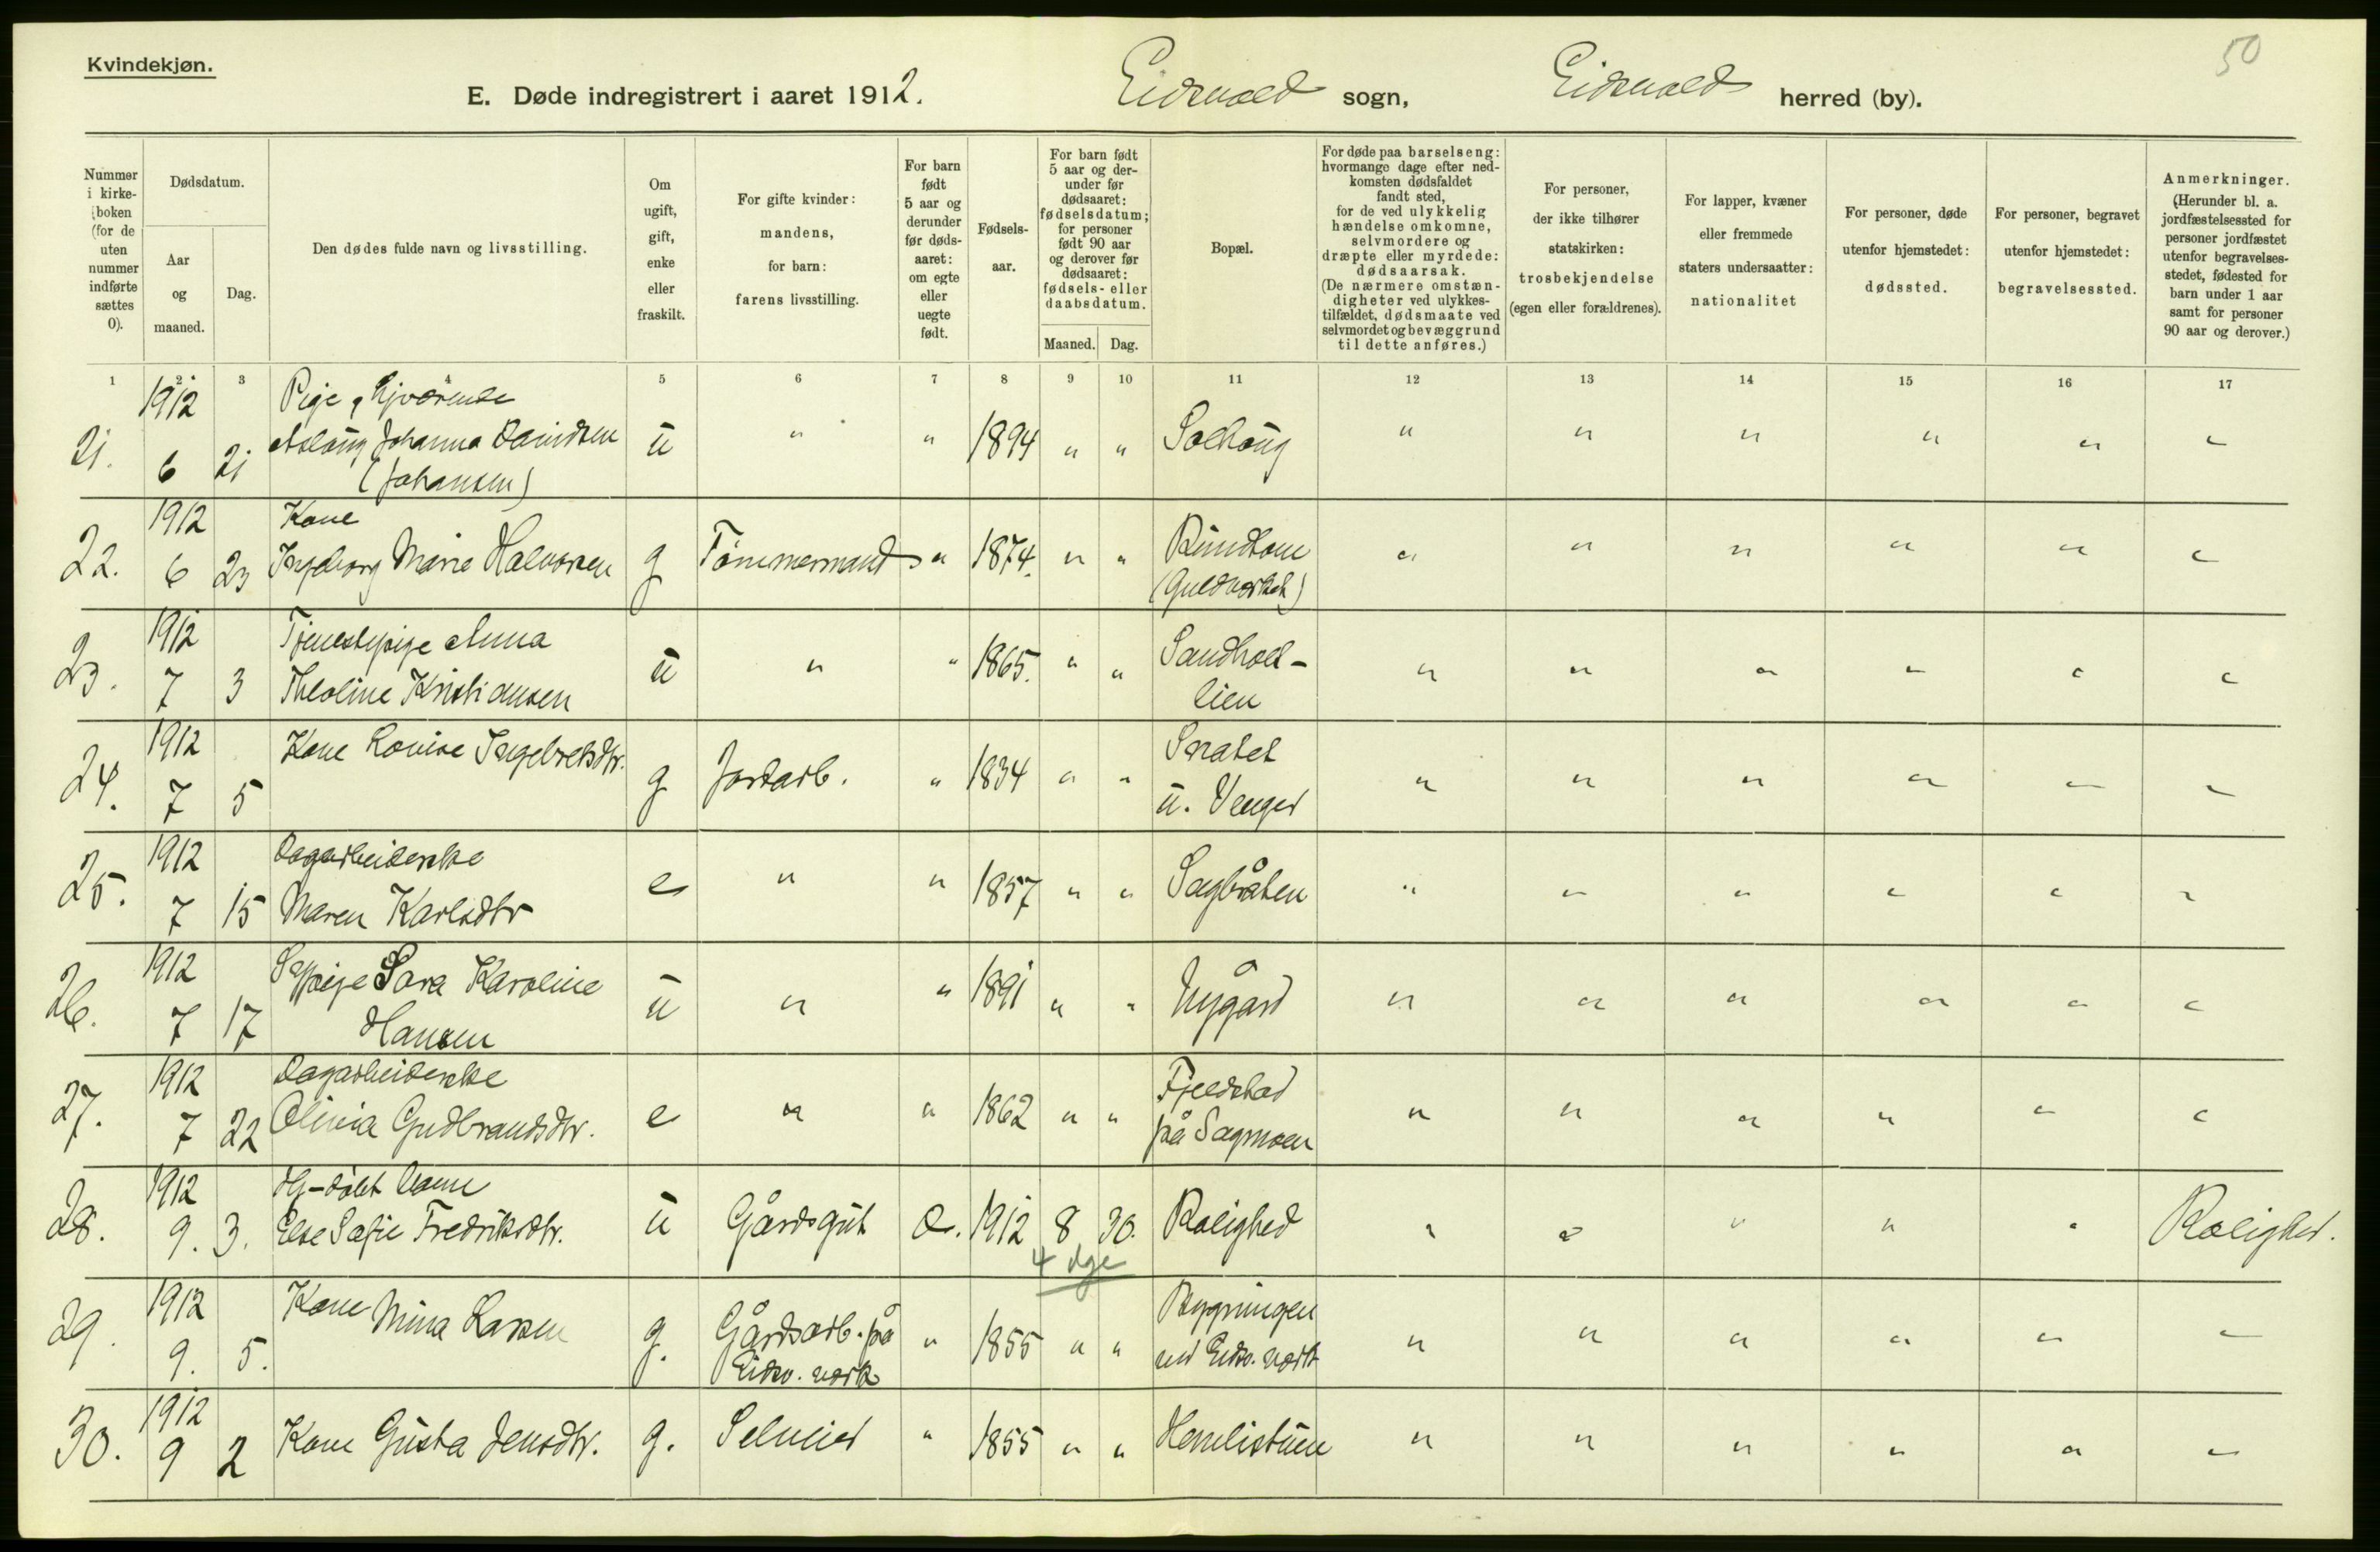 50
Kvindekjøn.
E. Døde indregistrert i aaret 1912. Eidsvold sogn, Eidsvold herred (by).
Nummer i kirkeboken (for de uten nummer indførte sættes 0).
Dødsdatum.
Aar og maaned.
Dag.
Den dødes fulde navn og livsstilling.
Om ugift, gift, enke eller fraskilt.
For gifte kvinder: mandens, for barn: farens livsstilling.
For barn født 5 aar og derunder før dødsaaret: om egte eller uegte født.
Fødselsaar.
For barn født 5 aar og derunder før dødsaaret: fødselsdatum; for personer født 90 aar og derover før dødsaaret: fødsels- eller daabsdatum.
Maaned. Dag.
Bopæl.
For døde paa barselseng: hvormange dage efter nedkomsten dødsfaldet fandt sted, for de ved ulykkelig hændelse omkomne, selvmordere og dræpte eller myrdede: dødsaarsak. (De nærmere omstændigheter ved ulykkestilfældet, dødsmaate ved selvmordet og bevæggrund til dette anføres.)
For personer, der ikke tilhører statskirken: trosbekjendelse (egen eller forældrenes).
For lapper, kvæner eller fremmede staters undersaatter: nationalitet
For personer, døde utenfor hjemstedet: dødssted.
For personer, begravet utenfor hjemstedet: begravelsessted.
Anmerkninger. (Herunder bl. a. jordfæstelsessted for personer jordfæstet utenfor begravelsesstedet, fødested for barn under 1 aar samt for personer 90 aar og derover.)
1 2 3 4 5 6 7 8 9 10 11 12 13 14 15 16 17
1912 Pige, hjværende
21. 6 21 Aslaug Johanna Davidsen ü " " 1894 " " Solhaug " " " " " "
(Johansen)
1912 Kone
22. 6 23 Ingeborg Marie Halvorsen g Tömmermand " 1874. " " Rundtom " " " " " "
(Guldverket)
1912 Tjenestepige Anna ü " " 1865. " " Sandhol- " " " " " "
23. 7 3 Theoline Kristiansen lien
1912 Kone Lovise Ingebretsdtr. Snatet
24. 7 5 g Jordarb. " 1834 " " u. Venger " " " " " "
1912 Dagarbeiderske
25. 7 15 Maren Karlsdtr e " " 1857 " " Sagbråten " " " " " "
1912 Sypige Sara Karoline
26. 7 17 Hansen ü " " 1891 " " Nygård " " " " " "
1912 Dagarbeiderske Fjeldstad
27. 7 22 Olivia Gudbrandsdtr. e " " 1862 " " på Sagmoen " " " " " "
1912 Hj-döbt barn
28. 9. 3. Else Sofie Fredriksdtr. ü Gårdsgut 1912 8 30. Rolighed " " " " " Rolighed.
4 dge
1912 Kone Mina Larsen Bygningen
29. 9. 5. g. Gårdsarb. på Eidsv. værk " 1855 " " ved Eidsv. værk " " " " " "
1912
30. 9 2 Kone Gusta Jensdtr. g. Selveier " 1855 " " Hemlistuen " " " " " "